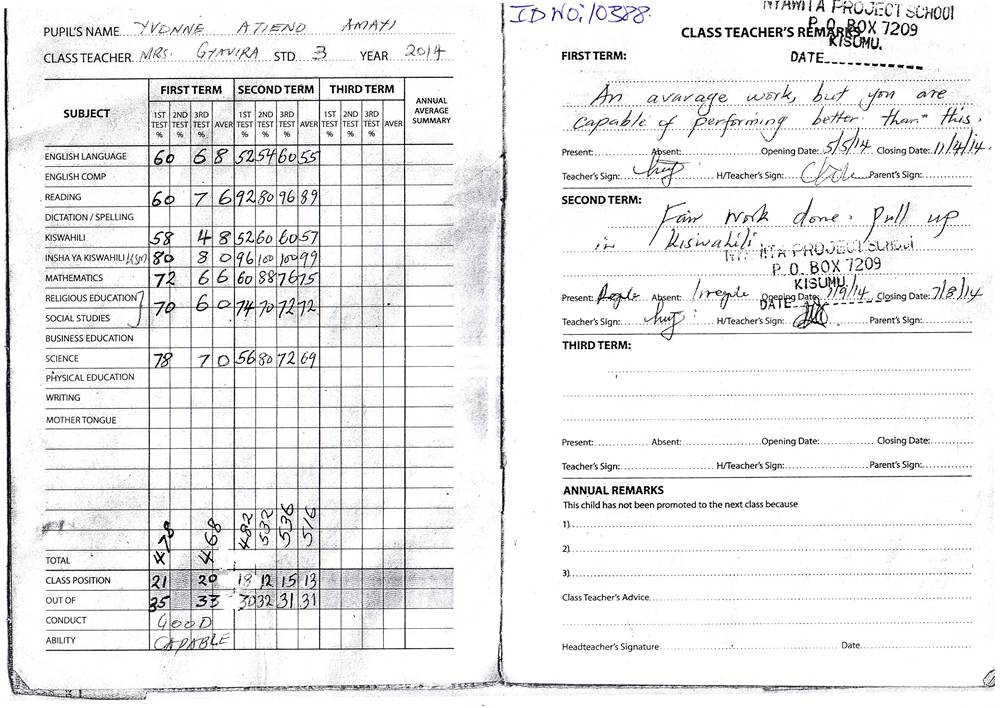 PUPIL'S NAME YVONNE ATIENO AMAYI
CLASS TEACHER MRS. GYAVIRA STD 3 YEAR 2014
SUBJECT FIRST TERM SECOND TERM THIRD TERM ANNUAL AVERAGE SUMMARY
1ST TEST % 2ND TEST % 3RD TEST % AVER 1ST TEST % 2ND TEST % 3RD TEST % AVER 1ST TEST % 2ND TEST % 3RD TEST % AVER
ENGLISH LANGUAGE 60 68 52 54 60 55
ENGLISH COMP
READING 60 76 92 80 96 89
DICTATION / SPELLING
KISWAHILI 58 48 52 60 60 57
INSHA YA KISWAHILI 80 80 96 100 100 99
MATHEMATICS 72 66 60 88 76 75
RELIGIOUS EDUCATION
SOCIAL STUDIES 70 60 74 70 72 72
BUSINESS EDUCATION
SCIENCE 78 70 56 80 72 69
PHYSICAL EDUCATION
WRITING
MOTHER TONGUE
TOTAL 478 468 482 532 536 516
CLASS POSITION 21 20 19 12 15 13
OUT OF 35 33 30 32 31 31
CONDUCT GOOD
ABILITY CAPABLE
ID NO: 10388.
NYAWITA PROJECT SCHOOL
P. O. BOX 7209
KISUMU.
DATE
CLASS TEACHER'S REMARKS
FIRST TERM:
An avarage work, but you are
capable of performing better than this.
Present: Absent: Opening Date: 5/5/14 Closing Date: 11/4/14.
Teacher's Sign: H/Teacher's Sign: Parent's Sign:
SECOND TERM:
Fair work done. Pull up
in Kiswahili
PROJECT SCHOOL
P. O. BOX 7209
KISUMU
DATE
Present: Absent: Opening Date: 1/9/14 Closing Date: 7/8/14
Teacher's Sign: H/Teacher's Sign: Parent's Sign:
THIRD TERM:
Present: Absent: Opening Date: Closing Date:
Teacher's Sign: H/Teacher's Sign: Parent's Sign:
ANNUAL REMARKS
This child has not been promoted to the next class because
1)
2)
3)
Class Teacher's Advice
Headteacher's Signature Date